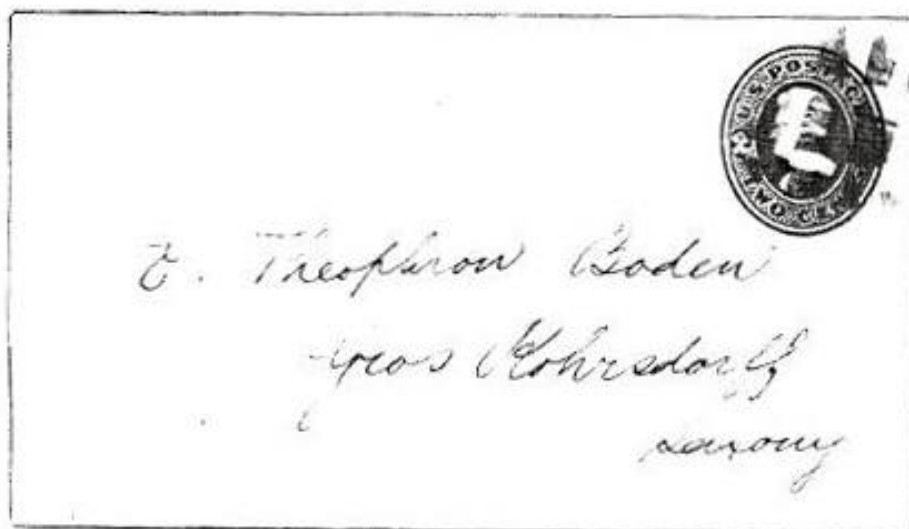 U.S. POSTAGE
TWO CENTS
E. Theophron Boden
Gros Röhrsdorff
Saxony